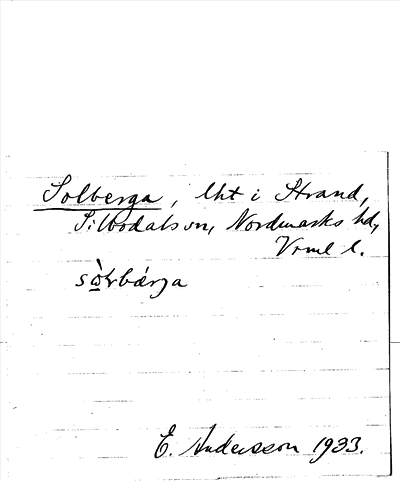 Solberga, lht i Strand,
Silbodals sn, Nordmarks hd,
Vrml l.
E. Andersson 1933.